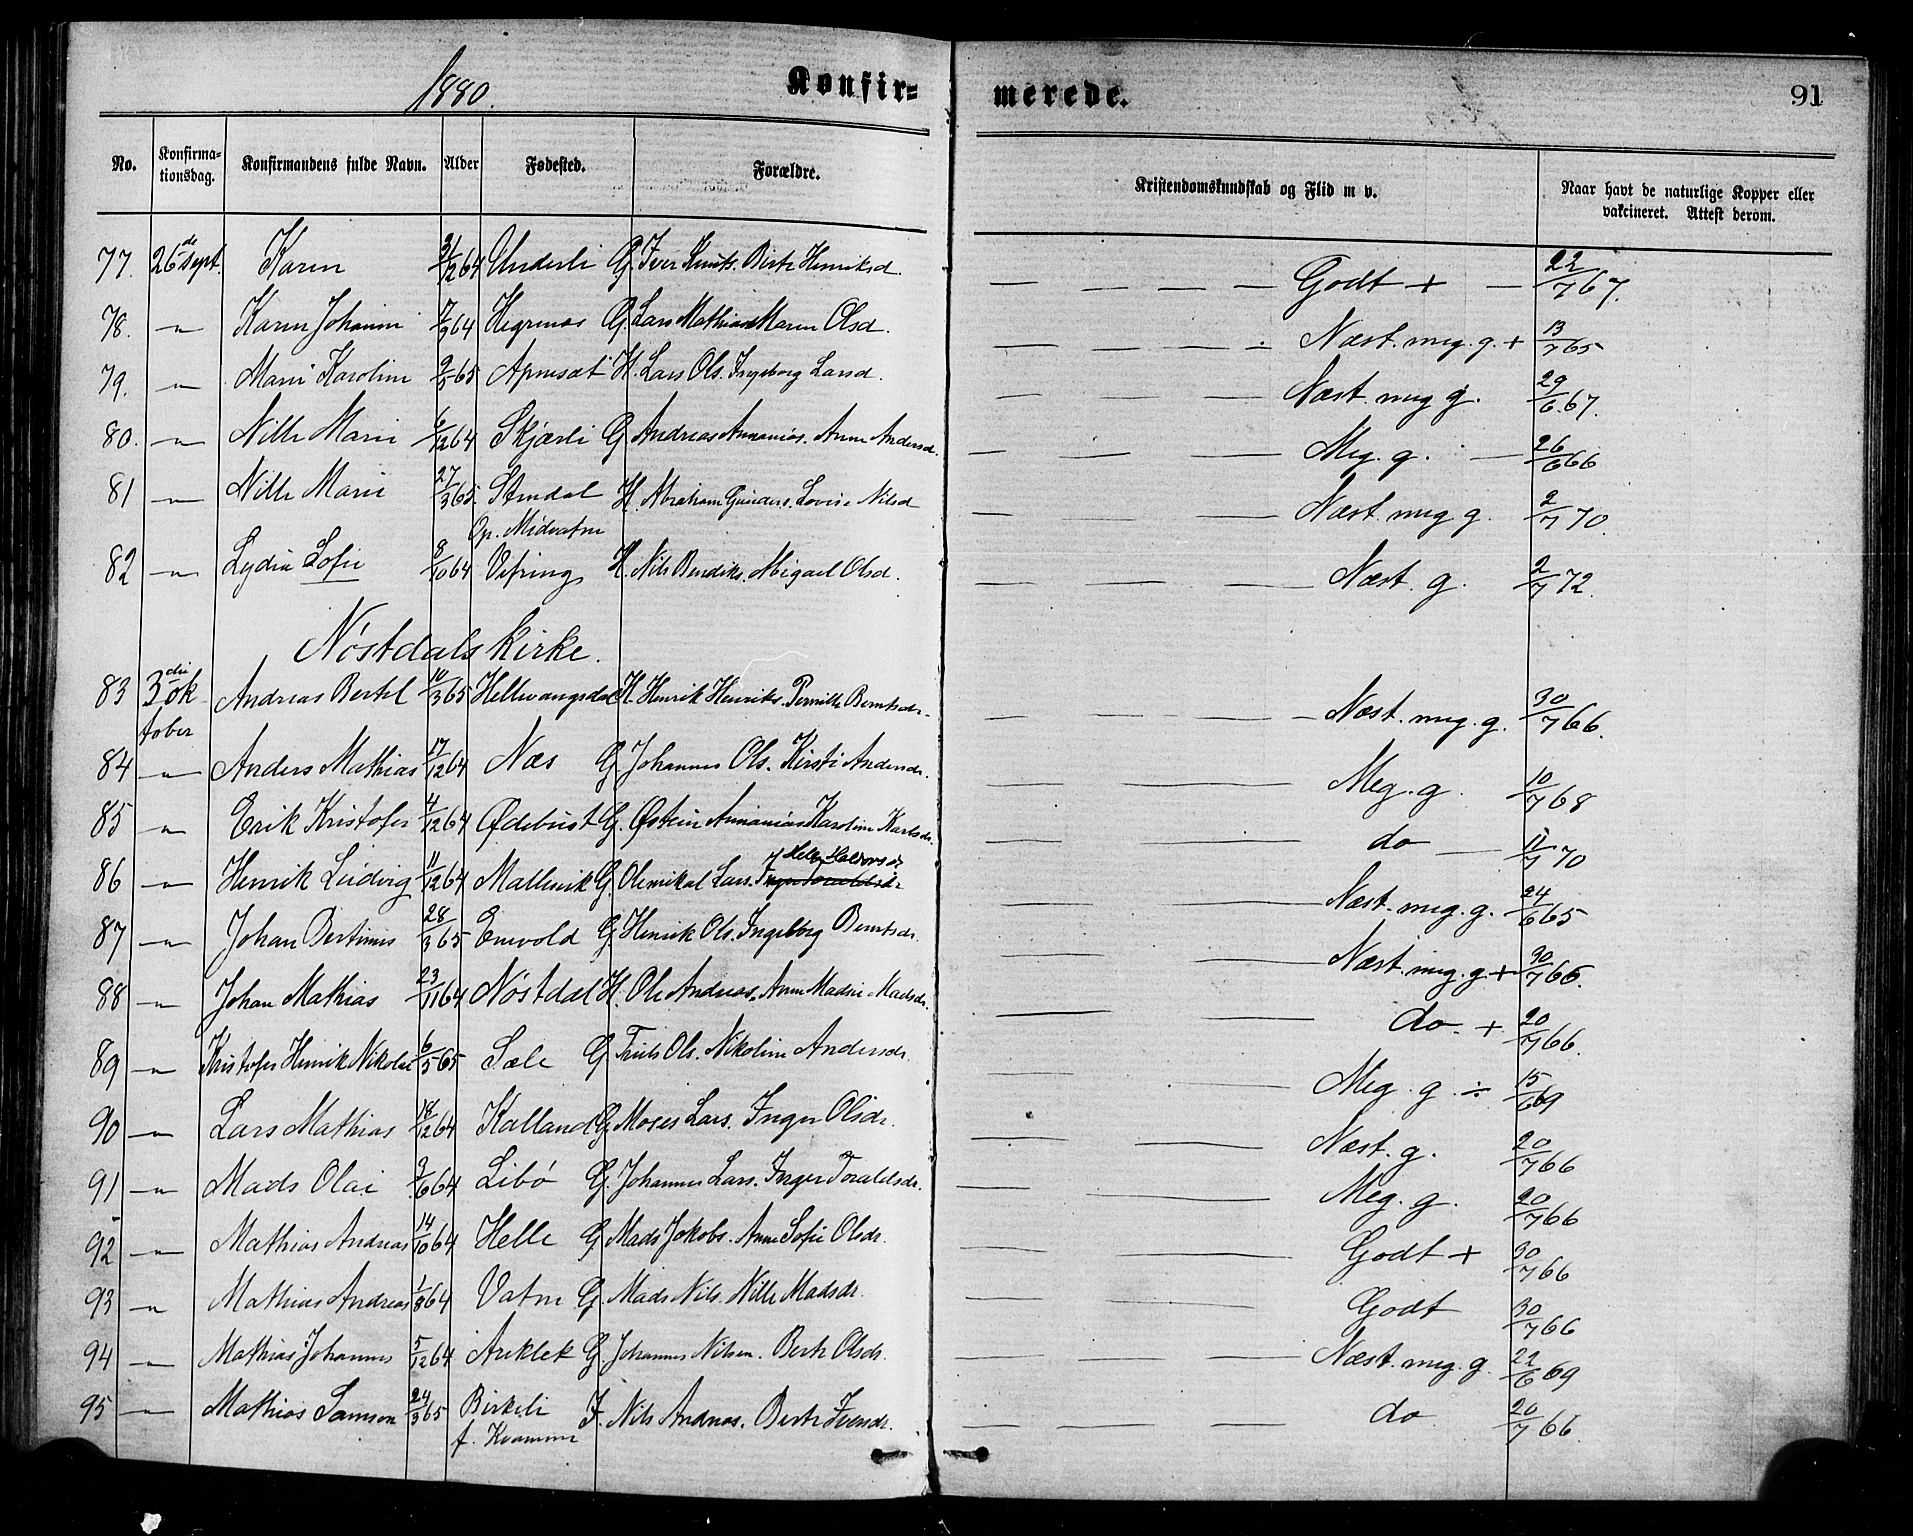 1880. Konfirmerede. 91
No. Konfirmationsdag. Konfirmandens fulde Navn. Alder Fødested. Forældre. Kristendomskundskab og Flid m v. Naar havt de naturlige Kopper eller vakcineret. Attest derom.
77. 26de Sept. Karen 21/12 64 Underli G. Iver Knuts. Birte Henriksd. Godt + 22/7 67.
78. -"- Karen Johanne 7/9 64 Hegrenæs G. Lars Mathias. Maren Olsd. Næst. meg. g. + 13/7 65
79. -"- Marie Karoline 9/5 65 Apnesæt H. Lars Ols. Ingeborg Larsd. Næst. meg g. 29/6 67.
80. -"- Nille Marie 6/12 64 Skjærli G Andreas Annanias. Anne Andersd. Meg. g. 26/6 66
81 -"- Nille Marie 27/3 65. Stendal H. Abraham Gunders. Lovise Nilsd Næst. meg g. 2/7 70.
Op. Midvatne
82 -"- Lydia Sofie 8/10 64 Vefring H. Nils Bendiks. Abigael Olsd. Næst. g. 2/7 72.
Nøstdals Kirke.
83 3die ok Andreas Bertel 10/3 65 Hellevangsdal H. Henrik Henriks. Pernille Berntsdr. Næst. meg. g. 30/7 66.
tober
84 -"- Anders Mathias 17/12 64 Næs G Johannes Ols. Kirsti Andersdr. Meg. g. 10/7 68
85 -"- Erik Kristofer 4/12 64 Ødebust G. Østein Annanias Karoline Karlsdr. do 11/7 70
86 -"- Henrik Ludvig 11/12 64 Mallevik G. Olemikal Lars. Inger Toraldsdr Helle Haldorsdr Næst. meg. g. 24/6 65
87 -"- Johan Bertinus 28/3 65 Enevold G Henrik Ols. Ingeborg Berntsdr. Næst. meg. g + 30/7 66.
88 -"- Johan Mathias 23/11 64 Nøstdal H. Ole Andreas. Anne Madsie Madsdr. do. + 20/7 66.
89 -"- Kristofer Henrik Nikolai 6/5 65 Sæle G Truls Ols. Nikoline Andersdr. Meg. g. ÷ 15/6 69
90 -"- Lars Mathias 18/12 64 Kalland G Moses Lars. Inger Olsdr. Næst. g. 20/7 66
91 -"- Mads Olai 9/6 64 Libø G. Johannes Lars. Inger Toraldsdr. Meg. g. 20/7 66
92 -"- Mathias Andreas 14/10 64 Helle G Mads Jakobs. Anne Sofie Olsdr. Godt + 30/7 66
93 -"- Mathias Andreas 1/8 64 Vatne G Mads Nils. Nille Madsdr. Godt 30/7 66
94 -"- Mathias Johannes 5/12 64 Arklek G. Johannes Nilsen. Berte Olsdr. Næst. meg. g 22/6 69
95 -"- Mathias Samson 24/3 65 Birkeli F. Nils Andreas. Berte Iversdr. do 20/7 66.
f. Kvamme